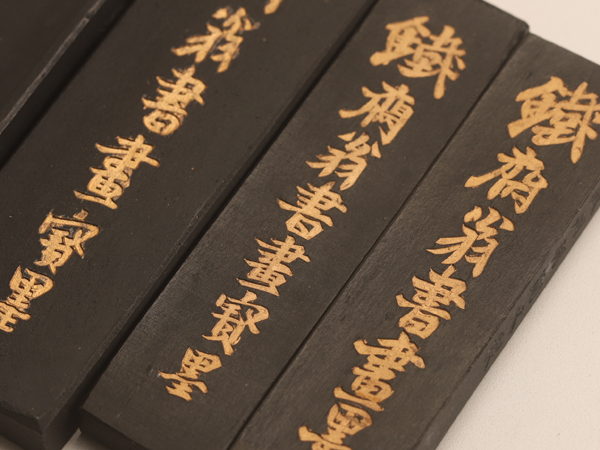 鐵齋翁書畫墨
鐵齋翁書畫寳墨
翁書畫寳墨